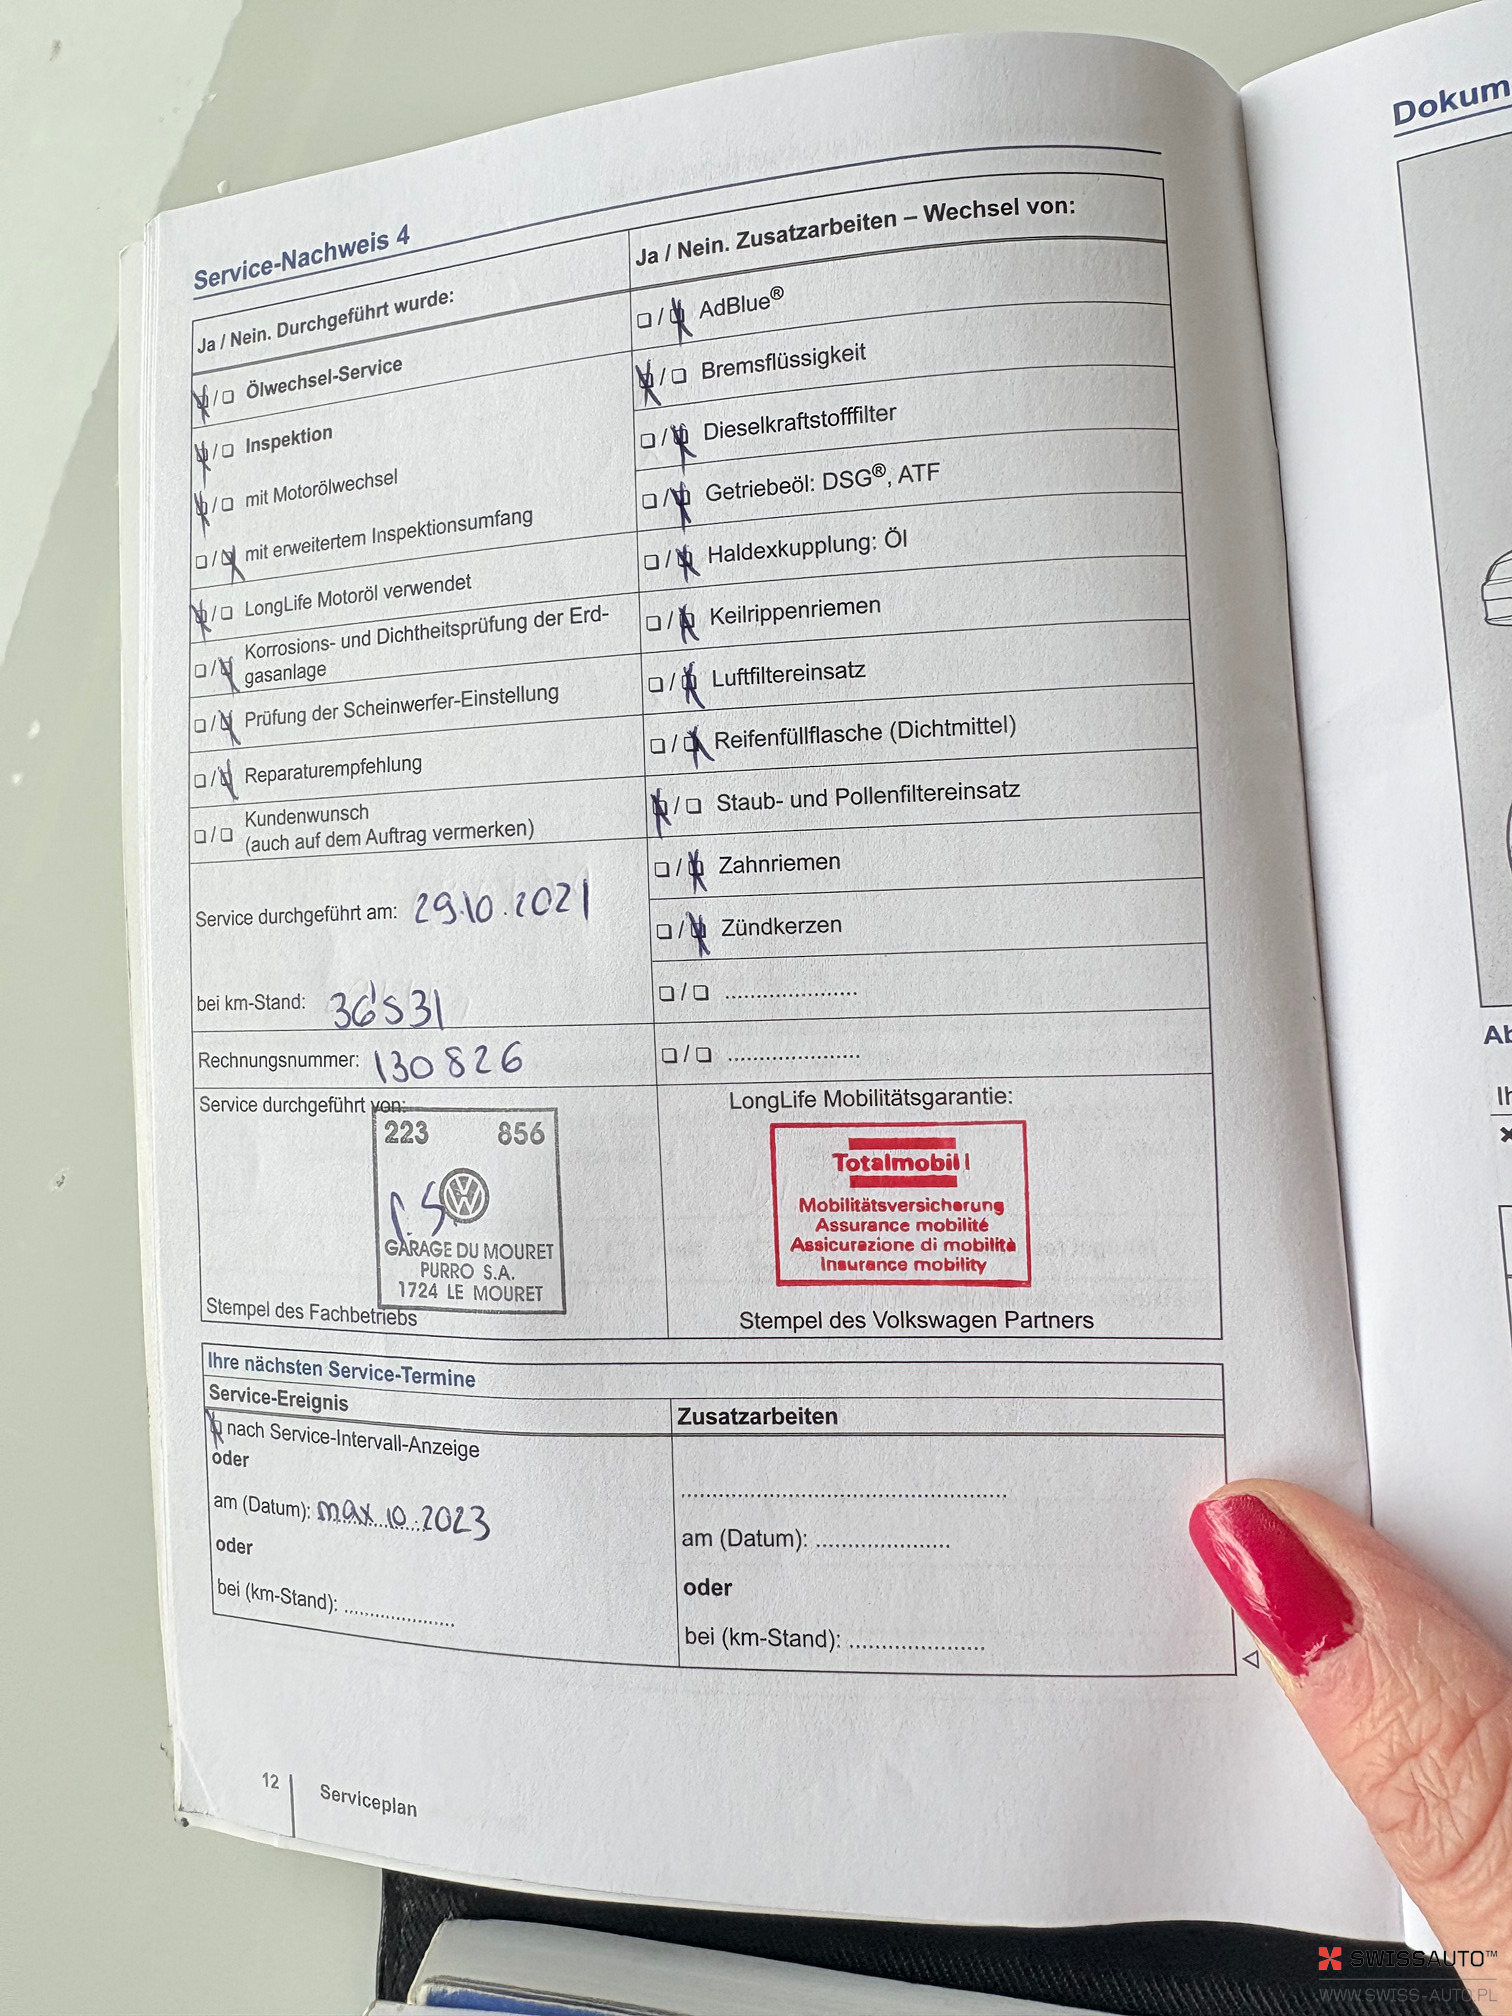 Dokum
Service-Nachweis 4
Ja / Nein. Durchgeführt wurde:
Ölwechsel-Service
Inspektion
mit Motorölwechsel
mit erweitertem Inspektionsumfang
LongLife Motoröl verwendet
Korrosions- und Dichtheitsprüfung der Erd-
gasanlage
Prüfung der Scheinwerfer-Einstellung
Reparaturempfehlung
Kundenwunsch
(auch auf dem Auftrag vermerken)
Service durchgeführt am: 29.10.2021
bei km-Stand: 36'531
Rechnungsnummer: 130826
Ja / Nein. Zusatzarbeiten – Wechsel von:
AdBlue®
Bremsflüssigkeit
Dieselkraftstofffilter
Getriebeöl: DSG®, ATF
Haldexkupplung: Öl
Keilrippenriemen
Luftfiltereinsatz
Reifenfüllflasche (Dichtmittel)
Staub- und Pollenfiltereinsatz
Zahnriemen
Zündkerzen
Service durchgeführt von:
223 856
GARAGE DU MOURET
PURRO S.A.
1724 LE MOURET
Stempel des Fachbetriebs
LongLife Mobilitätsgarantie:
Totalmobil!
Mobilitätsversicherung
Assurance mobilité
Assicurazione di mobilità
Insurance mobility
Stempel des Volkswagen Partners
Ihre nächsten Service-Termine
Service-Ereignis
nach Service-Intervall-Anzeige
oder
am (Datum): max 10.2023
oder
bei (km-Stand):
Zusatzarbeiten
am (Datum):
oder
bei (km-Stand):
12 Serviceplan
Ab
Ih
SWISSAUTO™
WWW.SWISS-AUTO.PL